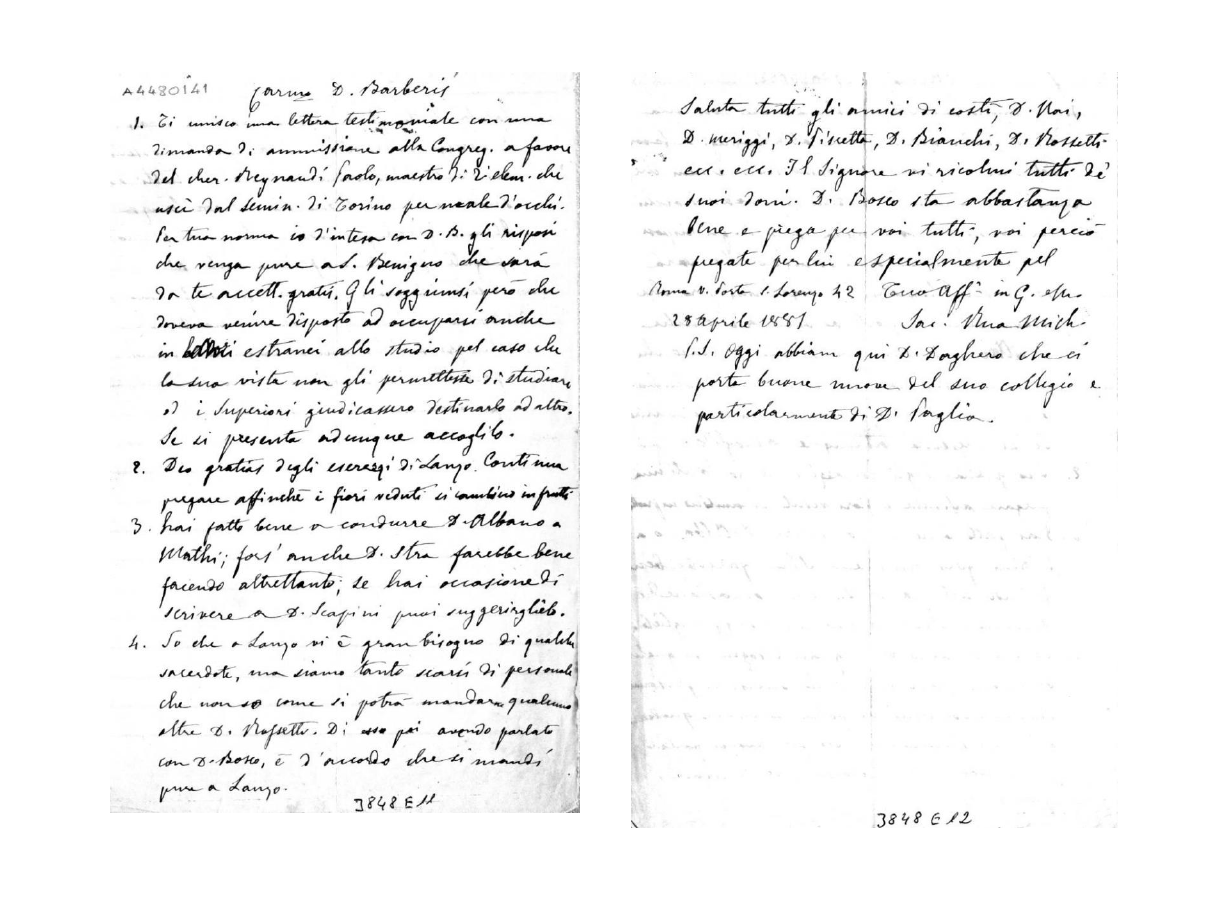 A4480141
Carmo D. Barberis
1. Ti unisco una lettera testimoniale con una
dimanda di ammissione alla Congreg. a favore
del cher. Reynaudi Paolo, maestro di 2ª elem. che
uscì dal Semin. di Torino per male d'occhi.
Per tua norma io d'intesa con D. B. gli risposi
che venga pure a S. Benigno che sarà
da te accett. gratis. Gli soggiunsi però che
doveva venire disposto ad occuparsi anche
in estranei allo studio pel caso che
la sua vista non gli permettesse di studiare
od i Superiori giudicassero destinarlo ad altro.
Se si presenta adunque accoglilo.
2. Deo gratias degli esercizi di Lanzo. Continua
pregare affinchè i fiori veduti si cambino in frutti
3. hai fatto bene a condurre D. Albano a
Mathi; fors' anche D. Stra farebbe bene
facendo altrettanto; se hai occasione di
scrivere a D. Scapini puoi suggerirglielo.
4. So che a Lanzo vi è gran bisogno di qualche
sacerdote, ma siamo tanto scarsi di personale
che non so come si potrà mandarne qualcuno
oltre D. Rossetti. Di esso poi avendo parlato
con D. Bosco, è d'accordo che si mandi
pure a Lanzo.
3848 E 11
Saluta tutti gli amici di costì, D. Nai,
D. Meriggi, D. Piscetta, D. Bianchi, D. Rossetti
ecc. ecc. Il Signore vi ricolmi tutti de'
suoi doni. D. Bosco sta abbastanza
bene e prega per voi tutti, voi perciò
pregate per lui especialmente pel
Roma v. Porta S. Lorenzo 42 Tuo Aff. in G.
28 Aprile 1881 Sac. Rua Mich.
P.S. Oggi abbiam qui D. Daghero che ci
porta buone nuove del suo collegio e
particolarmente di D. Paglia.
3848 E 12